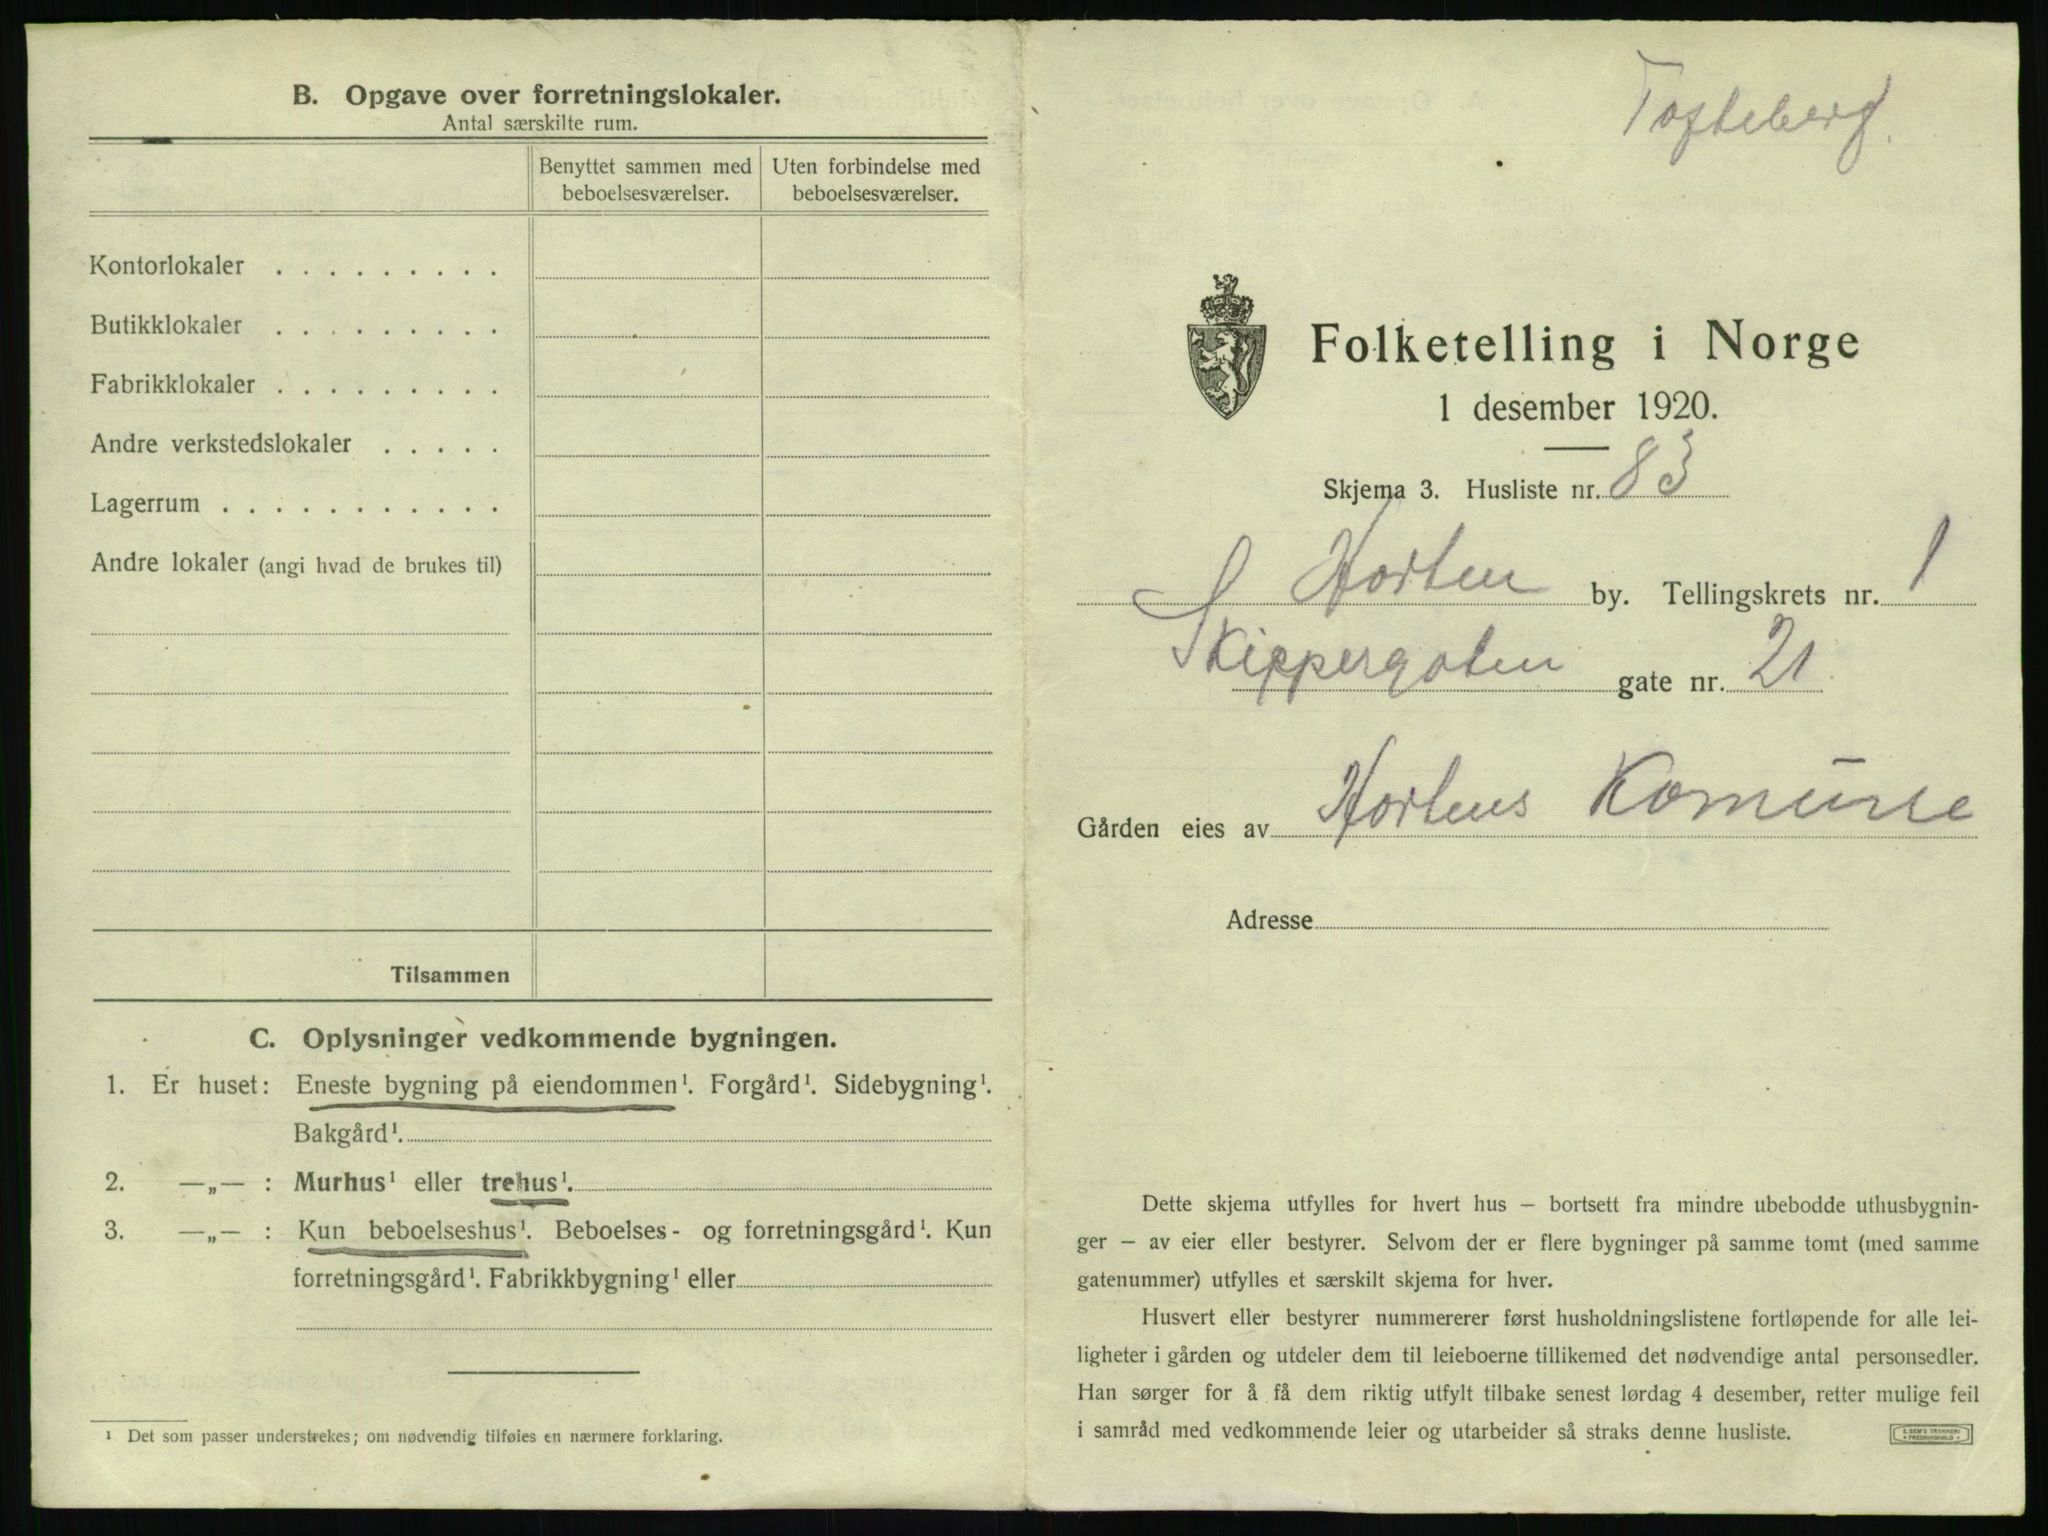 B. Opgave over forretningslokaler.
Antal særskilte rum.
Benyttet sammen med
beboelsesværelser.
Uten forbindelse med
beboelsesværelser.
Kontorlokaler . . . . . . . . .
Butikklokaler . . . . . . . . .
Fabrikklokaler . . . . . . . . .
Andre verkstedslokaler . . . . .
Lagerrum . . . . . . . . . . .
Andre lokaler (angi hvad de brukes til)
Tilsammen
C. Oplysninger vedkommende bygningen.
1. Er huset: Eneste bygning på eiendommen¹. Forgård¹. Sidebygning¹.
Bakgård¹.
2. —„— : Murhus¹ eller trehus¹.
3. —„— : Kun beboelseshus¹. Beboelses- og forretningsgård¹. Kun
forretningsgård¹. Fabrikkbygning¹ eller
¹ Det som passer understrekes; om nødvendig tilføies en nærmere forklaring.
Tofteberg.
Folketelling i Norge
1 desember 1920.
Skjema 3. Husliste nr. 83
Horten by. Tellingskrets nr. 1
Skippergaten gate nr. 21
Gården eies av Hortens Komune
Adresse
Dette skjema utfylles for hvert hus – bortsett fra mindre ubebodde uthusbygnin-
ger – av eier eller bestyrer. Selvom der er flere bygninger på samme tomt (med samme
gatenummer) utfylles et særskilt skjema for hver.
Husvert eller bestyrer nummererer først husholdningslistene fortløpende for alle lei-
ligheter i gården og utdeler dem til leieboerne tillikemed det nødvendige antal personsedler.
Han sørger for å få dem riktig utfylt tilbake senest lørdag 4 desember, retter mulige feil
i samråd med vedkommende leier og utarbeider så straks denne husliste.
E. SEM'S TRYKKERI
FREDRIKSHALD